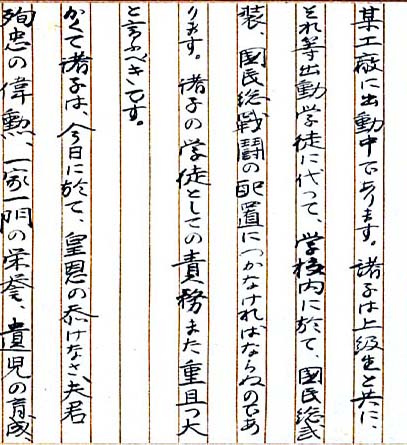 某工廠に出動中であります。諸子は上級生と共に、
それ等出動学徒に代つて、学校内に於て、国民総武
装、国民総戦闘の配置につかなければならぬのであ
ります。諸子の学徒としての責務また重且つ大
と言ふべきです。
かくて諸子は、今日に於て、皇恩の忝けなさ、夫君
殉忠の偉勲、一家一門の栄誉、遺児の育成